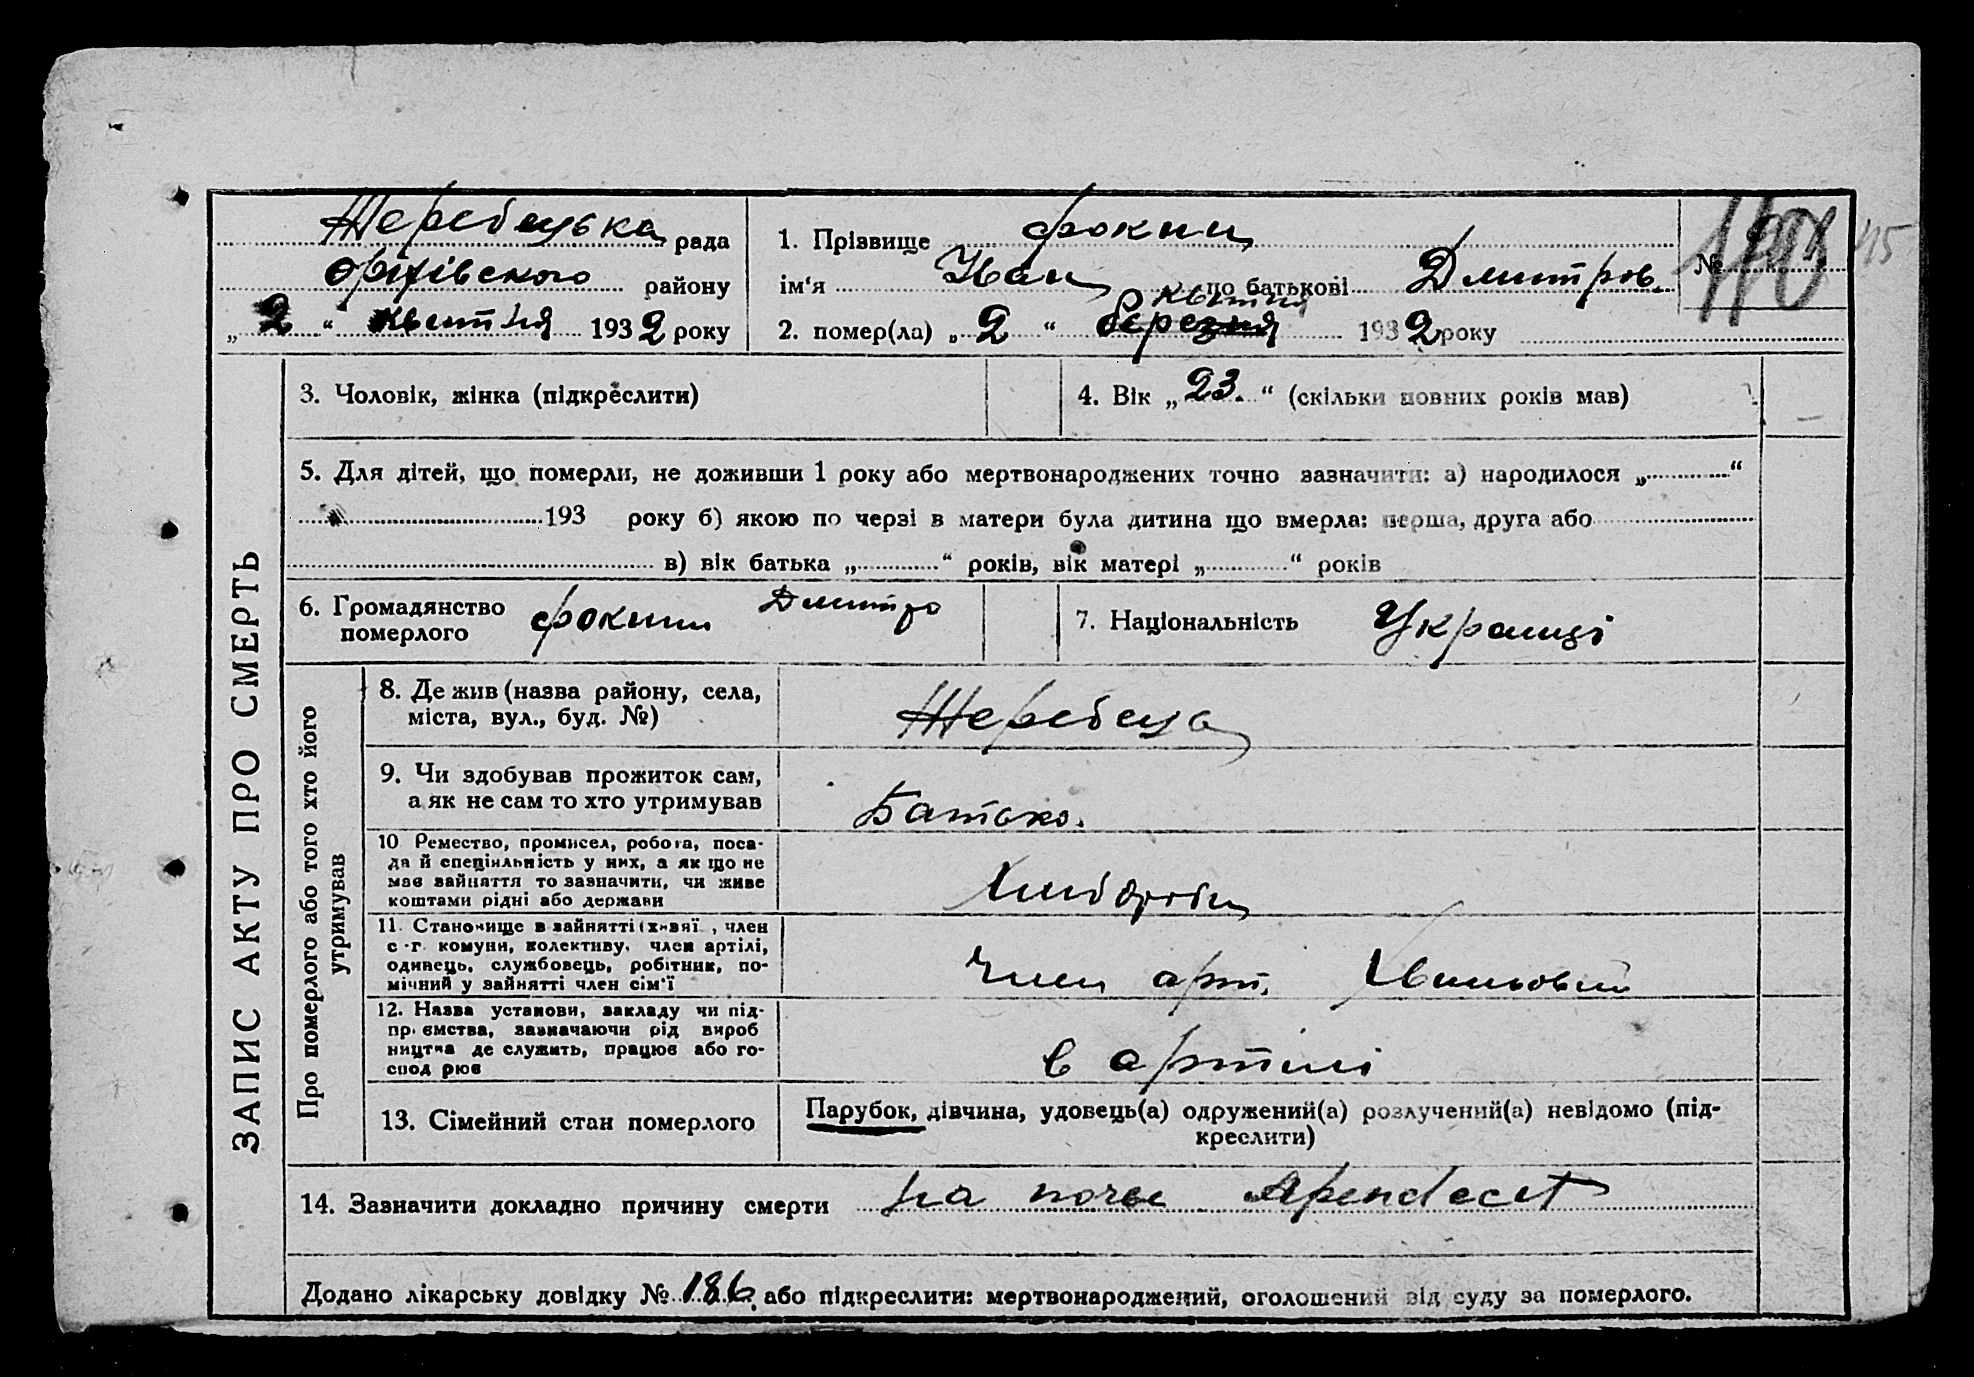 Жеребецька рада
Оріхівського району
„2“ квітня 1932 року
1. Прізвище Фокин
ім‘я Иван по батькові Дмитров.
квітня
2. помер(ла) „2“ березня 1932 року
№
115
ЗАПИС АКТУ ПРО СМЕРТЬ
3. Чоловік, жінка (підкреслити)
4. Вік „23.“ (скільки повних років мав)
5. Для дітей, що померли, не доживши 1 року або мертвонароджених точно зазначити: а) народилося „ “
193 року б) якою по черзі в матери була дитина що вмерла: перша, друга або
в) вік батька „ “ років, вік матері „ “ років
6. Громадянство померлого Фокин Дмитро
7. Національність Украинці
Про померлого або того хто його утримував
8. Де жив (назва району, села,
міста, вул., буд. №)
Жеребеца
9. Чи здобував прожиток сам,
а як не сам то хто утримував
Батько.
10 Ремество, промисел, робота, поса-
да й спеціяльність у них, а як що не
має зайняття то зазначити, чи живе
коштами рідні або держави
11. Становище в зайнятті (хазяї., член
с.-г. комуни, колективу, член артілі,
одинець, службовець, робітник, по-
мічний у зайнятті член сім‘ї
Член арт.
12. Назва установи, закладу чи під-
приємства, зазначаючи рід вироб
ництва де служить, працює або го-
спод рює
в артилі
13. Сімейний стан померлого
Парубок, дівчина, удовець(а) одружений(а) розлучений(а) невідомо (під-
креслити)
14. Зазначити докладно причину смерти на почве Apendecet
Додано лікарську довідку № 186, або підкреслити: мертвонароджений, оголошений від суду за померлого.